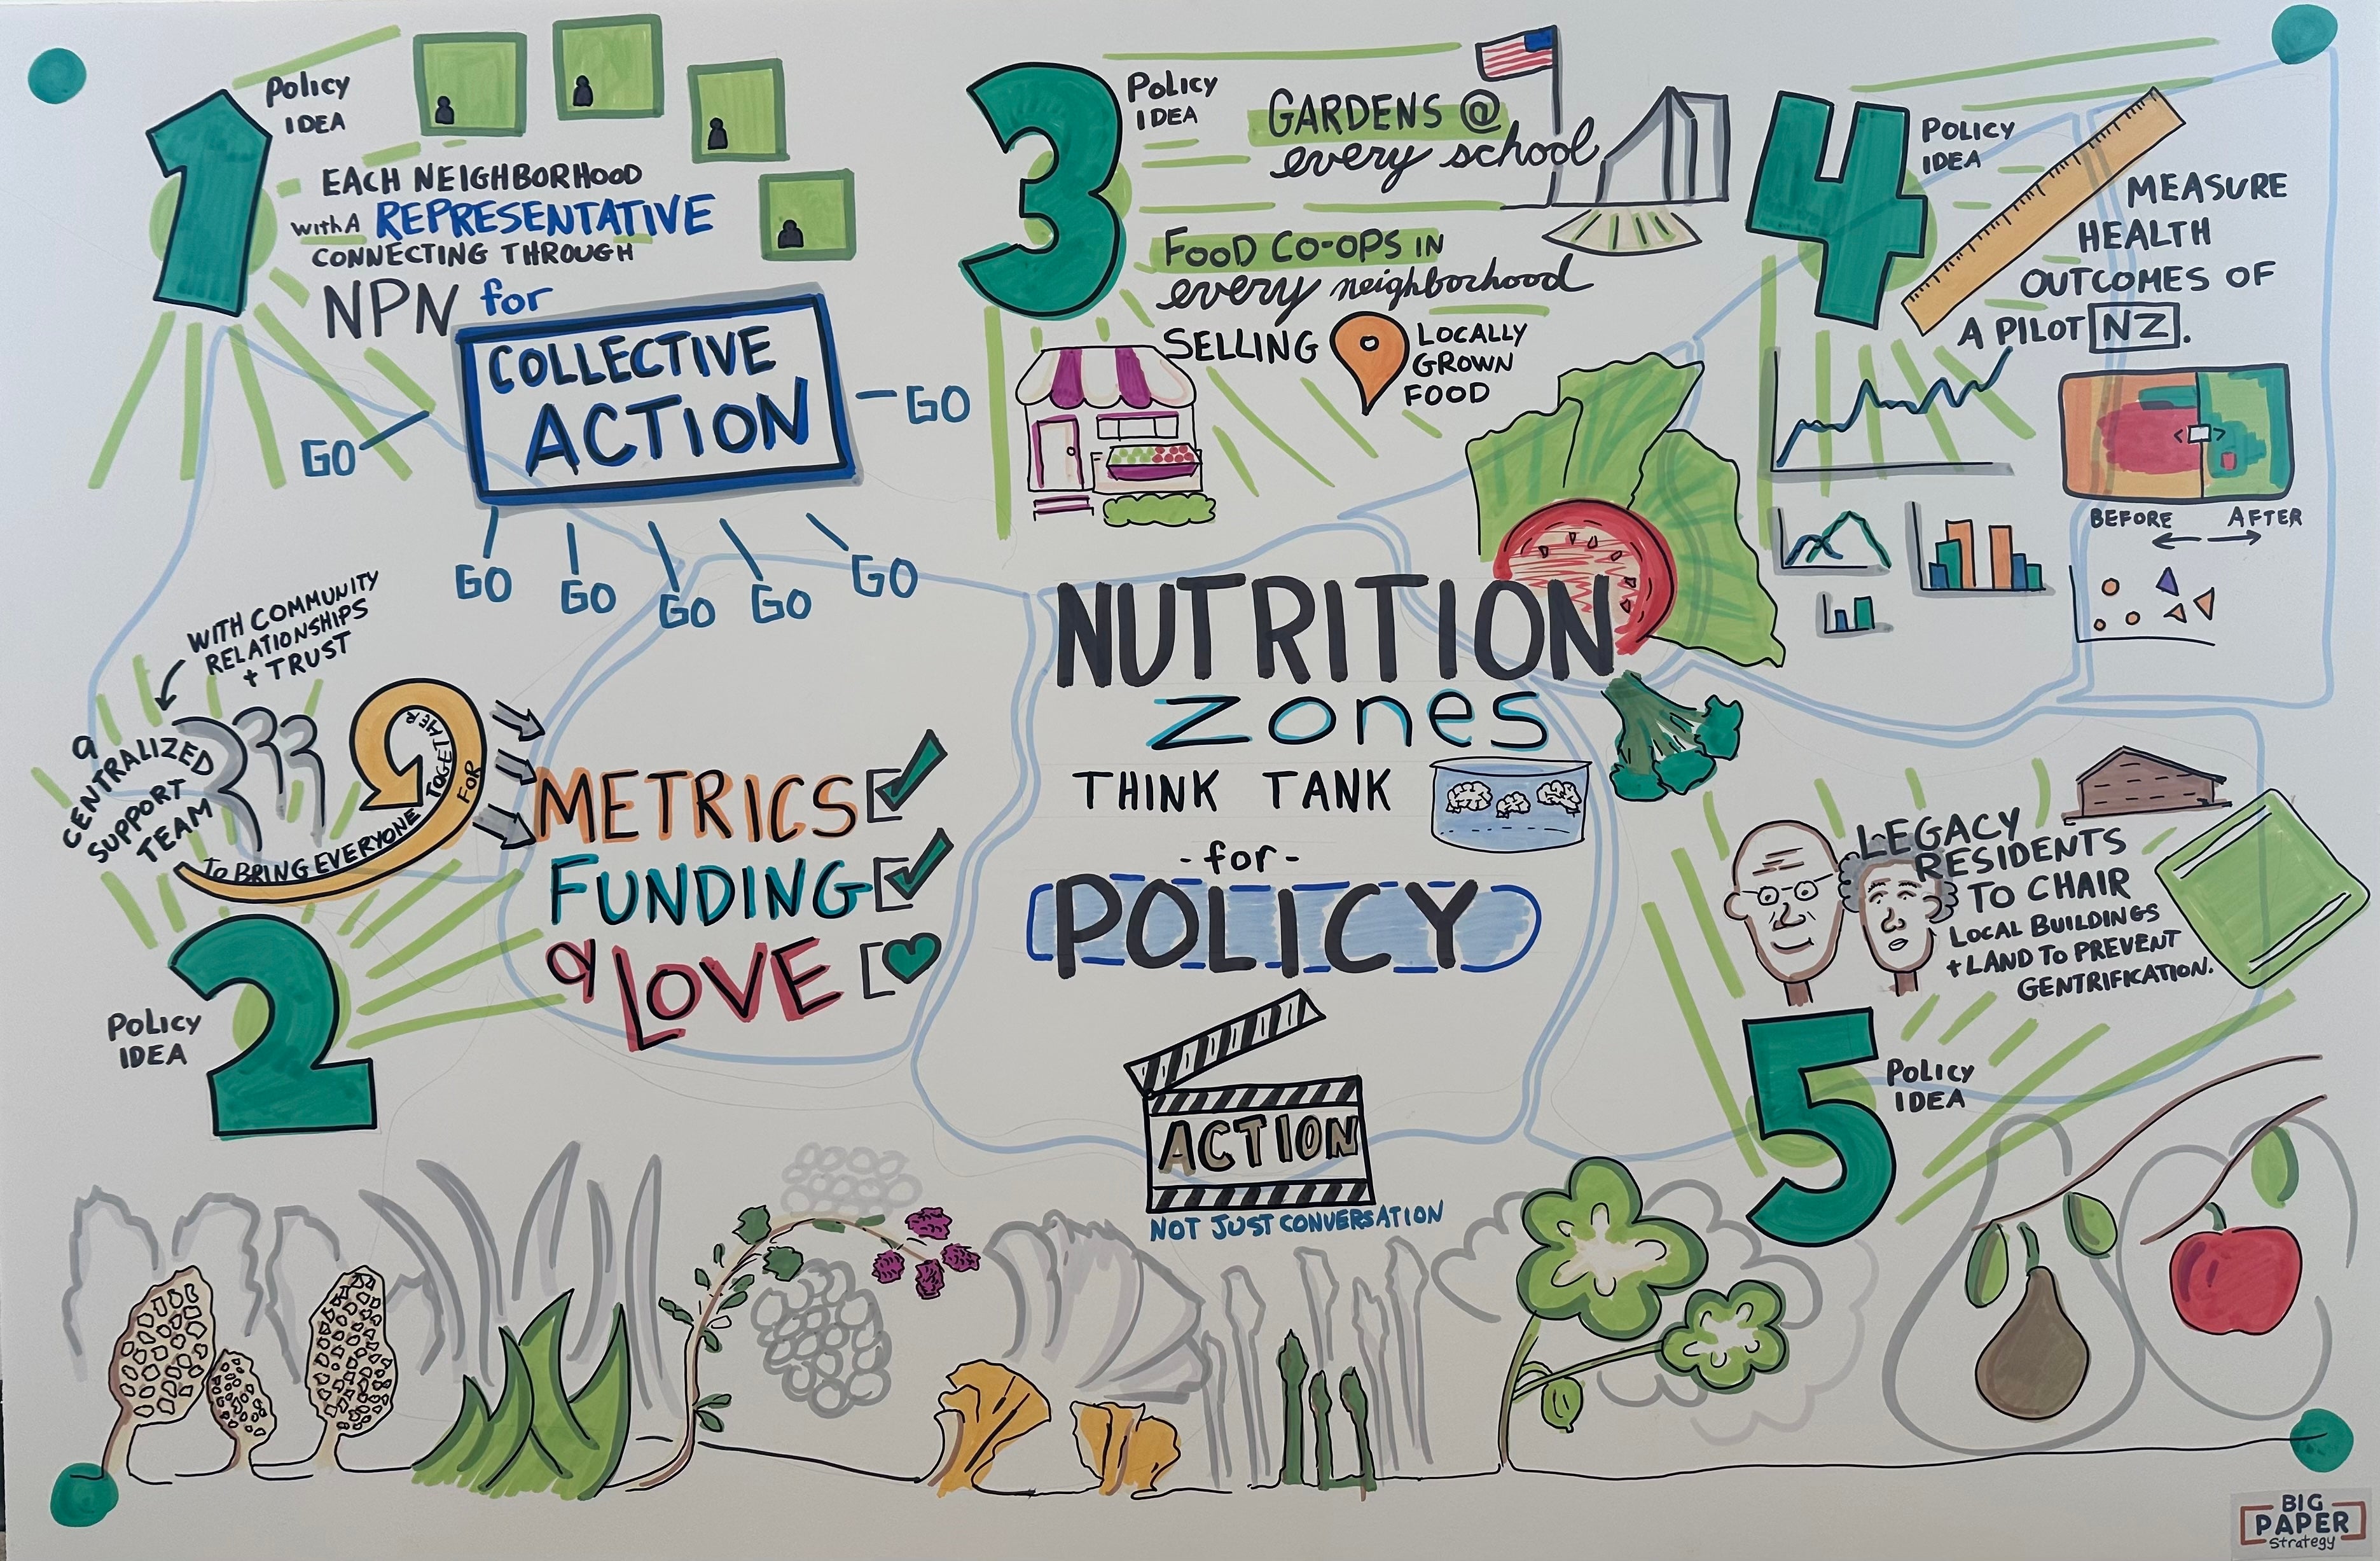 1
Policy
IDEA
EACH NEIGHBORHOOD
with A REPRESENTATIVE
CONNECTING THROUGH
NPN for
COLLECTIVE
ACTION
GO
GO
GO
GO
GO
GO
GO
WITH COMMUNITY
RELATIONSHIPS
+ TRUST
a
CENTRALIZED
SUPPORT
TEAM
To BRING EVERYONE TOGETHER
FOR
METRICS
FUNDING
& LOVE
2
Policy
IDEA
3
Policy
IDEA
GARDENS @
every school
FOOD CO-OPS IN
every neighborhood
SELLING
LOCALLY
GROWN
FOOD
NUTRITION
zones
THINK TANK
-for-
POLICY
ACTION
NOT JUST CONVERSATION
4
Policy
IDEA
MEASURE
HEALTH
OUTCOMES OF
A PILOT NZ.
BEFORE AFTER
LEGACY
RESIDENTS
TO CHAIR
LOCAL BUILDINGS
+ LAND TO PREVENT
GENTRIFICATION.
5
Policy
IDEA
BIG
PAPER
Strategy